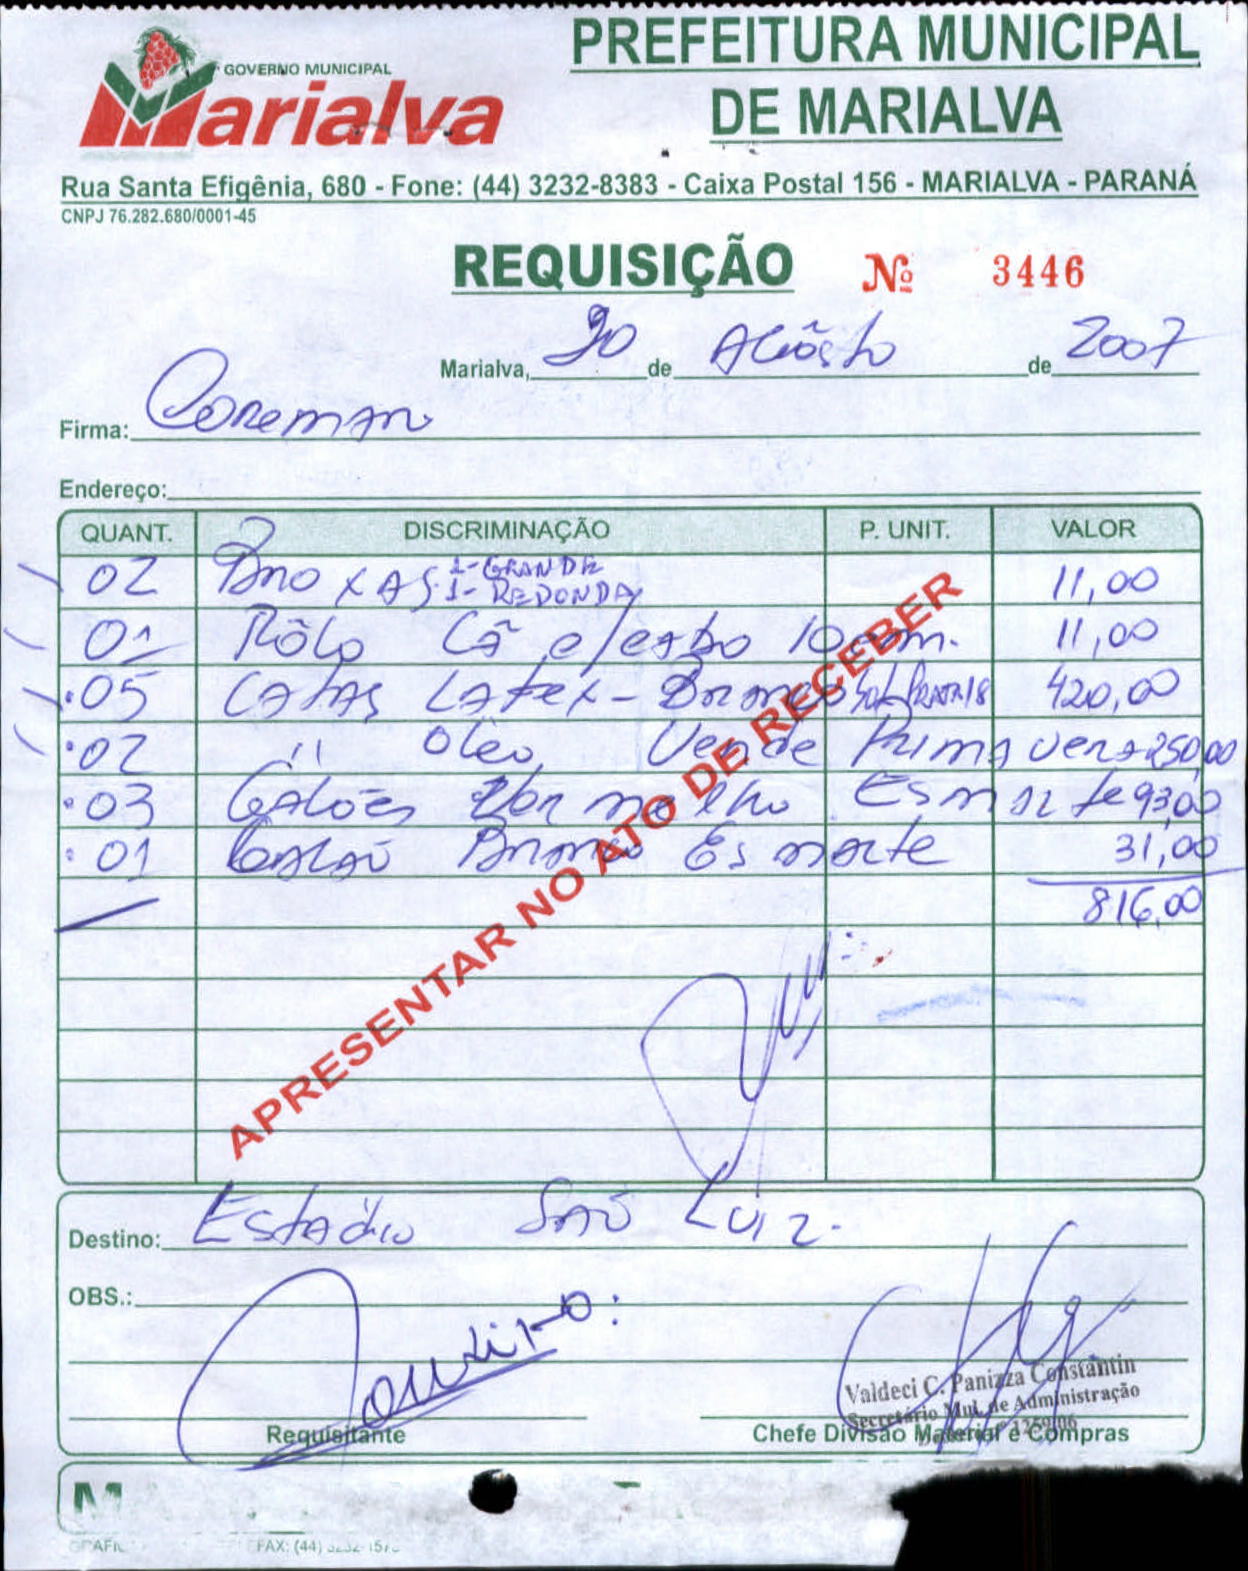 GOVERNO MUNICIPAL
Marialva
PREFEITURA MUNICIPAL
DE MARIALVA
Rua Santa Efigênia, 680 - Fone: (44) 3232-8383 - Caixa Postal 156 - MARIALVA - PARANÁ
CNPJ 76.282.680/0001-45
REQUISIÇÃO Nº 3446
Marialva, 20 de Agôsto de 2007
Firma: Coremar
Endereço:
QUANT. DISCRIMINAÇÃO P. UNIT. VALOR
02 1-GRANDE 1-REDONDA 11,00
01 Rôlo Lã c/cabo 10 cm. 11,00
05 Latas Latex - Branco 420,00
02 " Oleo Verde Primavera 250,00
03 Galões Vermelho Esmalte 93,00
01 Galão Branco Esmalte 31,00
816,00
APRESENTAR NO ATO DE RECEBER
Destino: Estádio São Luiz.
OBS.:
Valdeci C. Panizza Constantin
Secretário Mul. de Administração
Requisitante Chefe Divisão Material e Compras
FAX: (44)